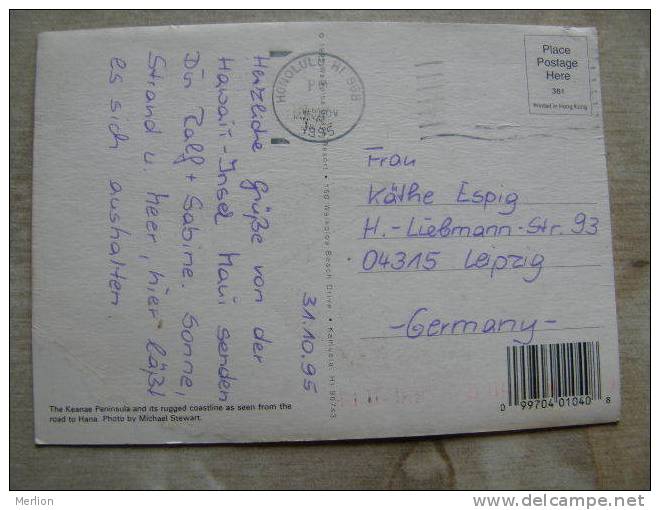 31.10.95
Herzliche Grüße von der
Hawaii-Insel Maui senden
Dir Ralf + Sabine. Sonne,
Strand u. Meer, hier läßt
es sich aushalten
HONOLULU, HI 968
1995
Place
Postage
Here
381
Printed in Hong Kong
Frau
Käthe Espig
H.-Liebmann-Str. 93
04315 Leipzig
-Germany-
Waikoloa Beach Drive • Kamuela, HI 96743
0 99704 01040 8
The Keanae Peninsula and its rugged coastline as seen from the
road to Hana. Photo by Michael Stewart.
Merlion
www.delcampe.net